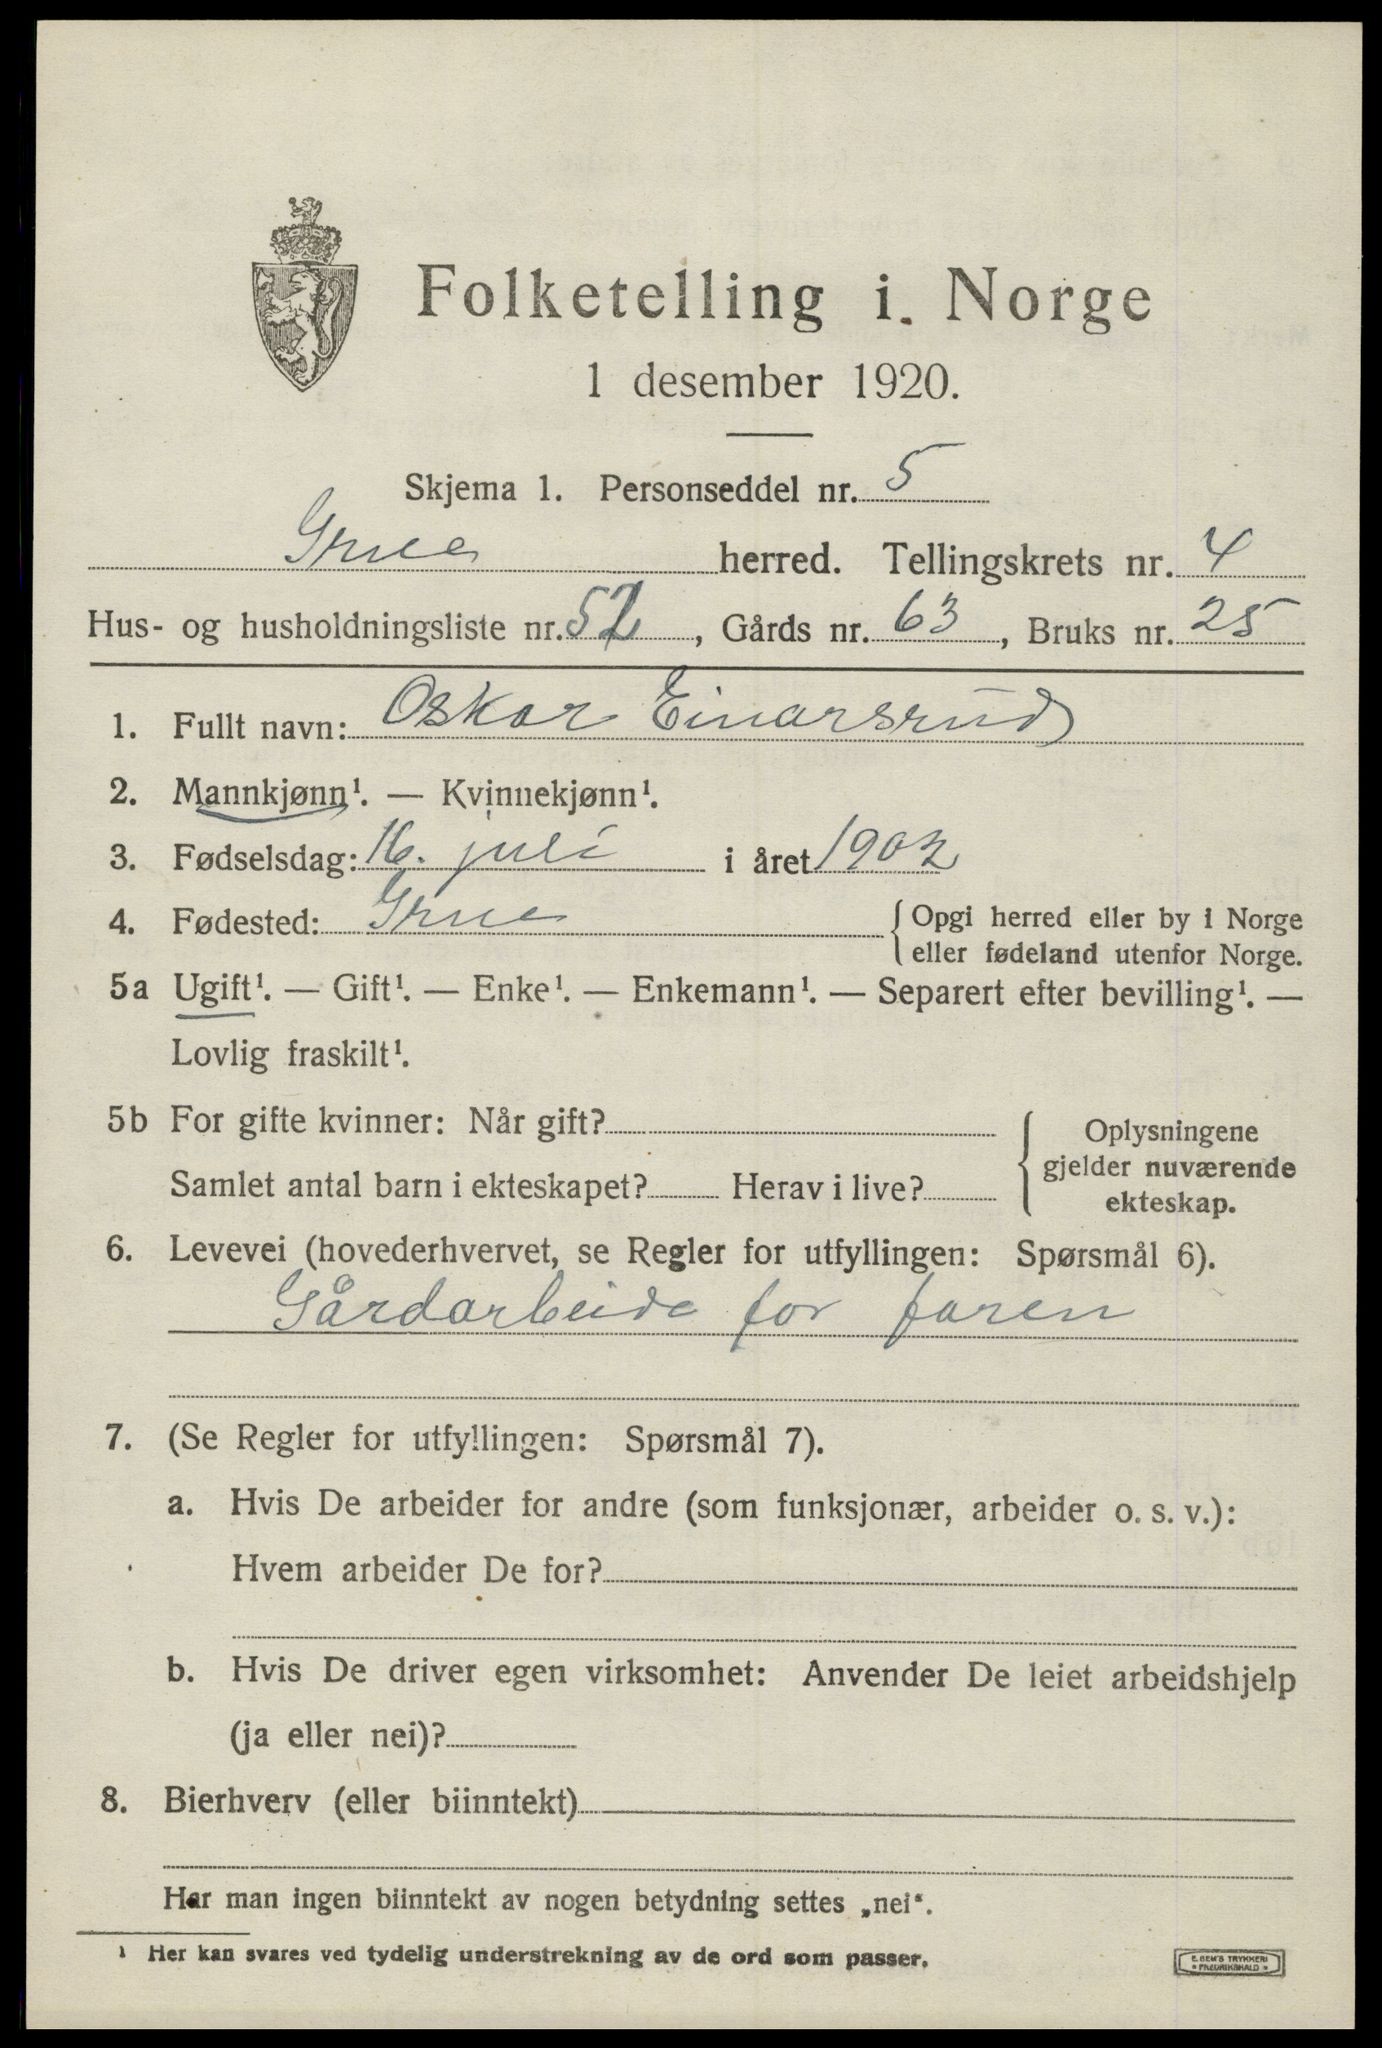 Folketelling i Norge
1 desember 1920.
Skjema 1. Personseddel nr. 5
Grue herred. Tellingskrets nr. 4
Hus- og husholdningsliste nr. 52, Gårds nr. 63, Bruks nr. 25
1. Fullt navn: Oskar Einarsrud
2. Mannkjønn¹. — Kvinnekjønn¹.
3. Fødselsdag: 16. juli i året 1902
4. Fødested: Grue { Opgi herred eller by i Norge
eller fødeland utenfor Norge.
5a Ugift¹. — Gift¹. — Enke¹. — Enkemann¹. — Separert efter bevilling¹. —
Lovlig fraskilt¹.
5b For gifte kvinner: Når gift?
Samlet antal barn i ekteskapet? Herav i live?
Oplysningene
gjelder nuværende
ekteskap.
6. Levevei (hovederhvervet, se Regler for utfyllingen: Spørsmål 6).
Gårdarbeide for faren
7. (Se Regler for utfyllingen: Spørsmål 7).
a. Hvis De arbeider for andre (som funksjonær, arbeider o. s. v.):
Hvem arbeider De for?
b. Hvis De driver egen virksomhet: Anvender De leiet arbeidshjelp
(ja eller nei)?
8. Bierhverv (eller biinntekt)
Har man ingen biinntekt av nogen betydning settes „nei“.
¹ Her kan svares ved tydelig understrekning av de ord som passer.
E. SEM'S TRYKKERI
• FREDRIKSHALD •